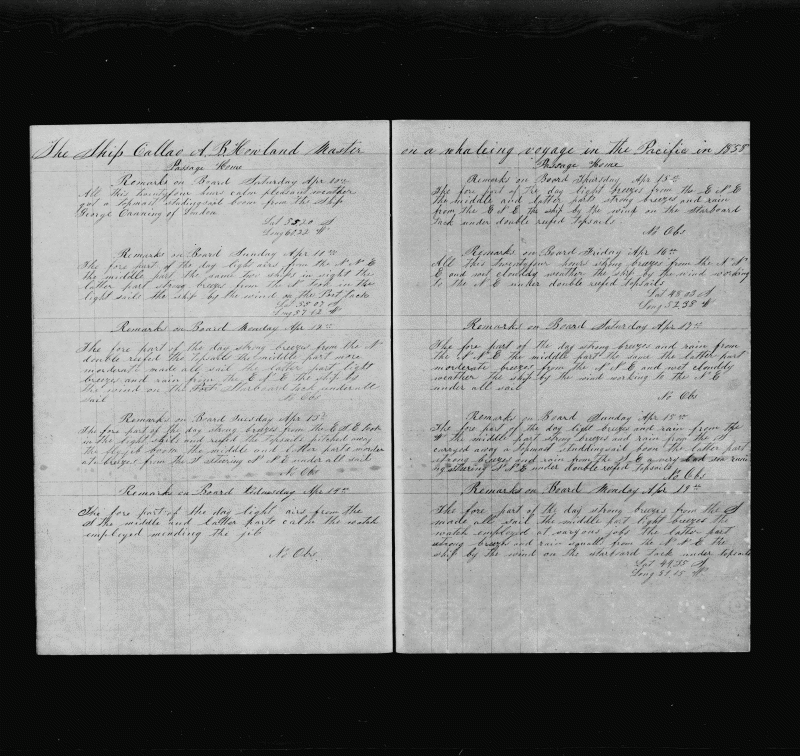 The Ship Callao A. B Howland Master
Passage Home
Remarks on Board Saturday Apr 10th
All this twentyfour hours calm pleasant weather
got a topmast studdingsail boom from the Ship
George Canning of London
Lat 55.20 S
Long 60.22 W
Remarks on Board Sunday Apr 11th
The fore part of the day light airs from the N N E
the middle part the same two ships in sight the
latter part strong breeze from the N took in the
light sails the ship by the wind on the Port Tacks
Lat 53 07 S
Long 57 12 W
Remarks on Board Monday Apr 12th
The fore part of the day strong breezes from the N
double reefed the Topsails the middle part more
morderate made all sail the latter part light
breezes and rain from the E N E the ship by
the wind on the Starboard Tack under all
sail No Obs
Remarks on Board Tuesday Apr 13th
The fore part of the day strong breezes from the E S E took
in the light sails and reefed the Topsails pitched away
the flyjib boom the middle and latter parts morder
ate breezes from the S stearing N N E under all sail
No Obs
Remarks on Board Wednesday Apr 14th
The fore part of the day light airs from the
S the middle and latter parts calm the watch
employed mending the jib
No Obs
on a whaleing voyage in the Pacific in 1858
Passage Home
Remarks on Board Thursday Apr 15th
The fore part of the day light breezes from the E N E
the middle and latter parts strong breezes and rain
from the E S E the ship by the wind on the Starboard
Tack under double reefed Topsails
No Obs
Remarks on Board Friday Apr 16th
All this Twentyfour hours strong breezes from the N N
E and wet clouddy weather the ship by the wind working
to the N E under double reefed topsails
Lat 48 03 S
Long 52 38 W
Remarks on Board Saturday Apr 17th
The fore part of the day strong breezes and rain from
the N N E the middle part the same the latter part
morderate breezes from the N N E and wet clouddy
weather the ship by the wind working to the N E
under all sail
No Obs
Remarks on Board Sunday Apr 18th
The fore part of the day light breezes and rain from the
the middle part strong breezes and rain from the S
carryed away a topmast studdingsail boom the latter part
strong breezes and rain from the S E a very bad sea runn
ng stearing N N E under double reefed Topsails
No Obs
Remarks on Board Monday Apr 19th
The fore part of the day strong breezes from the S
made all sail the middle part light breezes the
watch employed at varyous jobs the latter part
strong breezes and rain squalls from the N N E the
ship by the wind on the starboard Tack under topsails
Lat 49 35 S
Long 51 15 W